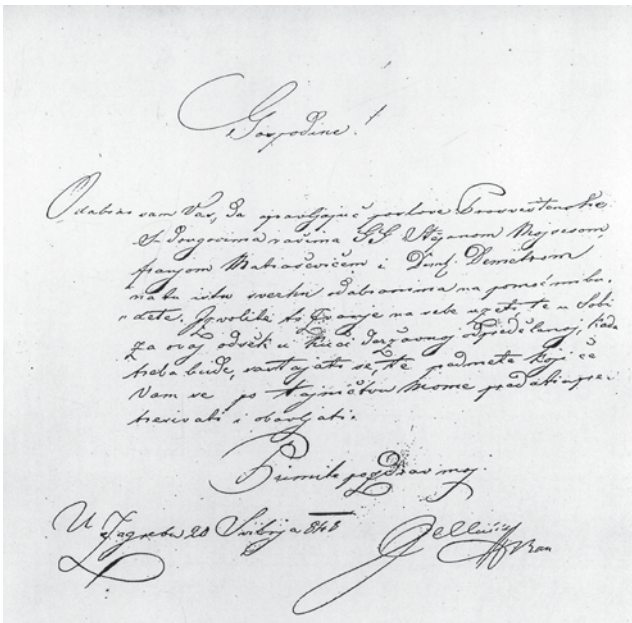 Gospodine!
Odabrao sam Vas, da upravljajuć poslove Prosvetjenske
s drugovima vašima GG Stĕpanom Mojsesom,
Franjom Matiaševićem i Dimf. Demetrom
na tu istu sverhu odabranima na pomoć mi bu-
„dete. Izvolite to zvanje na sebe uzeti, te u Sobi
za ovaj odsĕk u kući deržavnoj opredĕljenoj, kada
treba bude, sastajati se, te predmete koji će
Vam se po tajničtvu mome predati upre-
tresivati i obavljati.
Primite pozdrav moj.
U Zagrebu 20 Svibnja 848
Jellačić
Ban